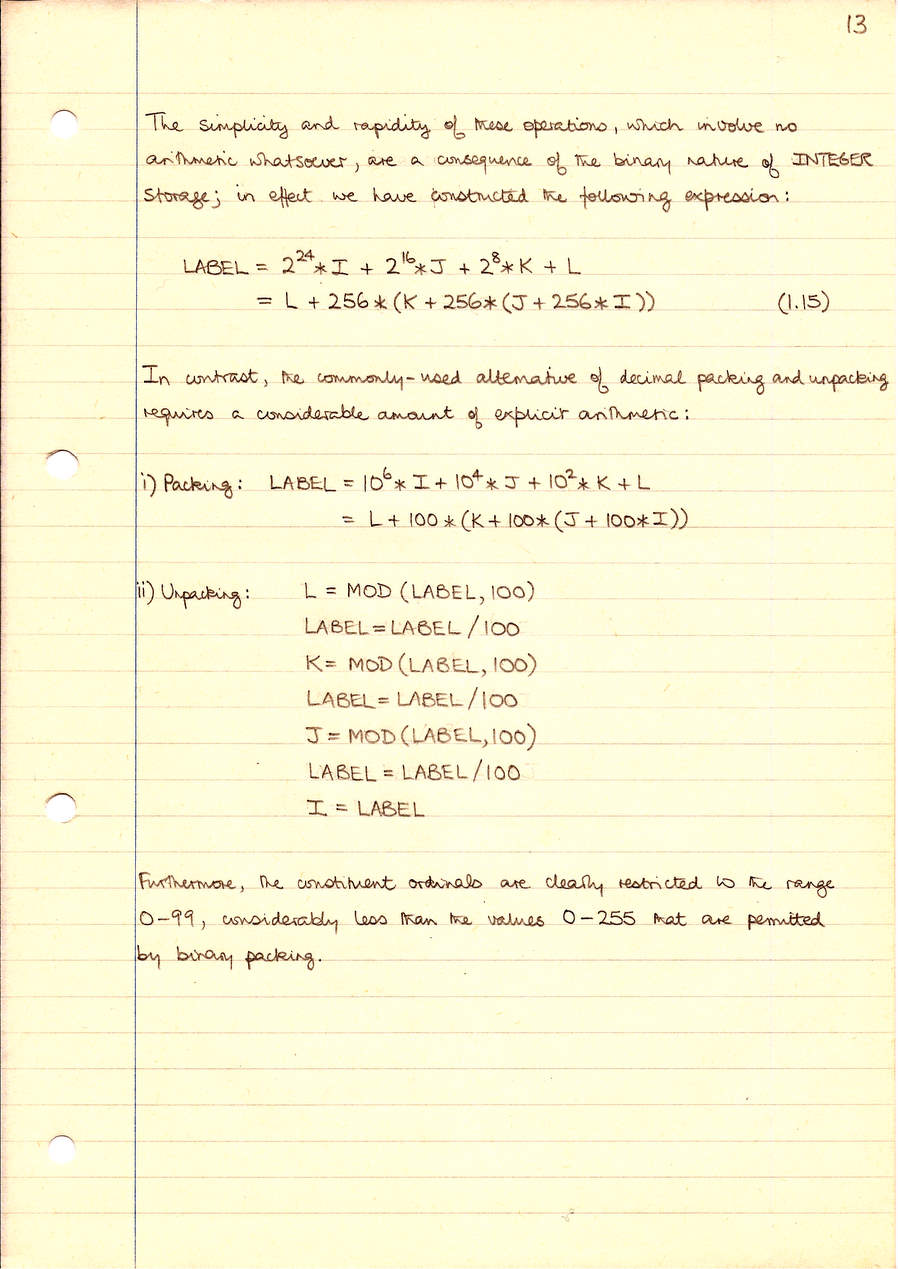 13
The simplicity and rapidity of these operations, which involve no
arithmetic whatsoever, are a consequence of the binary nature of INTEGER
storage; in effect we have constructed the following expression:
LABEL = 2²⁴*I + 2¹⁶*J + 2⁸*K + L
= L + 256*(K + 256*(J + 256*I)) (1.15)
In contrast, the commonly-used alternative of decimal packing and unpacking
requires a considerable amount of explicit arithmetic:
i) Packing: LABEL = 10⁶*I + 10⁴*J + 10²*K + L
= L + 100*(K + 100*(J + 100*I))
ii) Unpacking: L = MOD (LABEL, 100)
LABEL = LABEL / 100
K = MOD (LABEL, 100)
LABEL = LABEL / 100
J = MOD (LABEL, 100)
LABEL = LABEL / 100
I = LABEL
Furthermore, the constituent ordinals are clearly restricted to the range
0-99, considerably less than the values 0-255 that are permitted
by binary packing.